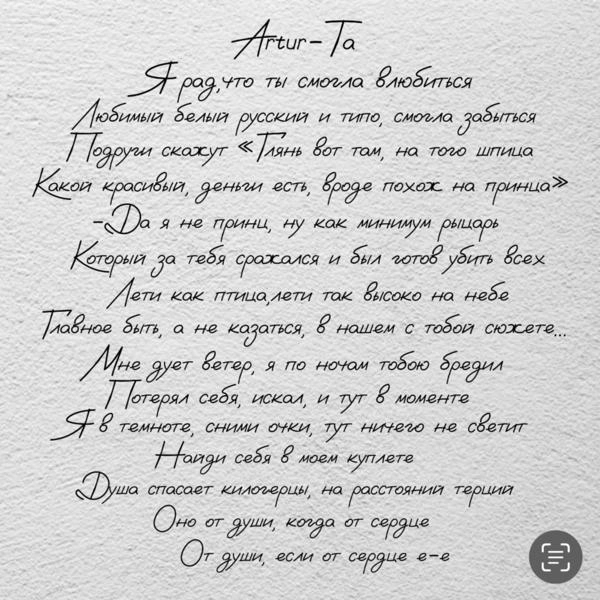 Artur-Ta
Я рад,что ты смогла влюбиться
Любимый белый русский и типо, смогла забыться
Подруги скажут «Глянь вот там, на того шпица
Какой красивый, деньги есть, вроде похож на принца»
-Да я не принц, ну как минимум рыцарь
Который за тебя сражался и был готов убить всех
Лети как птица,лети так высоко на небе
Главное быть, а не казаться, в нашем с тобой сюжете...
Мне дует ветер, я по ночам тобою бредил
Потерял себя, искал, и тут в моменте
Я в темноте, сними очки, тут ничего не светит
Найди себя в моем куплете
Душа спасает килогерцы, на расстояний терций
Оно от души, когда от сердце
От души, если от сердце е-е